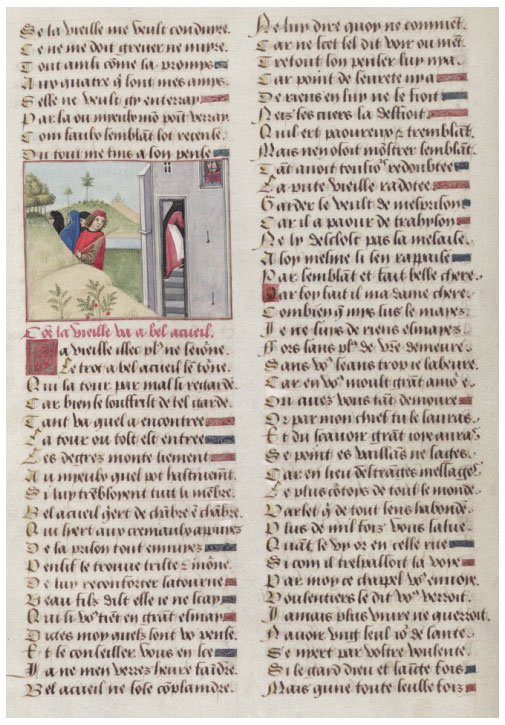 Se la vieille me veult conduyre.
Ce ne me doit grever ne nuyre.
Tout ainsi cõme la promps
Au quatre q̃ sont mes amps.
S elle ne veult g'y enterray
Par la ou myeulx mõ pouṽt verray
Com faulx semblãt lot recense.
Du tout me tins a son pense
Cõe la vieille va a bel acueil.
La vieille illec pl9 ne seiõne.
Le trot a bel acueil se tõne.
Qui la tour par mal li regarde
Car bien se souffrist de tel garde.
Tant va quel a encontree
La tour ou tost est entree
Les degrez monte liement
Au myeulx quel pot hastiuemt.
Si luy trembloyent tuit li mẽbre.
Bel acueil quert de chãbre ẽ chãbre.
Qui sert aux creneaulx appuyez
De la prison tout ennuyez
Pensif le trouue triste & mõne.
De luy reconforter satourne
Beau filz dist elle ie ne scay
Qui si vo9 tiẽt en grãt esmay
Dictes moy quelz sont vo9 pense
Et se conseiller vous en sce
Ja ne men verrez heure faindre.
Bel acueil ne sose cõplaindre.
Ne luy dire quoy ne commẽt.
Car ne scet sel dit voir ou mẽt.
Tretout son penser luy nya.
Car point de seurete ny a
De riens en luy ne se fioit
Neiz ses cuers la deffioit.
Quil ert paoureux & tremblãt.
Mais nen osoit mõstrer semblãt.
Tãt auoit tousio9s redoubtee
La pute vieille radotee
Garder se veult de mesprison
Car il a paour de trahyson
Ne ly desclost pas la mesaise
A soy mesme si sen rappaise
Par semblant et fait belle chere
Par foy fait il ma dame chere.
Combien q̃ mys sus le mayez
Je ne suys de riens esmayez
Fors sans pl9 de vr̃e demeure.
Sans vo9 ceans trop ie labeure.
Car en vo9 moult grãt amo9 e
Ou auez vous tãt demoure
Or par mon chief tu le scauras.
Et du scauoir grãt ioye auras
Se point es vaillãs ne saiges.
Car en lieu destrãges messages
Le plus cõrtoys de tout le monde.
Varlet q̃ de tout sens habonde.
Plus de mil foiz vous salue
Quãt le vy or en celle rue
Si com il trespassoit la voye
Par moy ce chappel vo9 enuoye.
Voulentiers se dit vo9 verroit.
Jamais plus viure ne querroit.
Nauoir vng seul io9 de sante.
Se nyert par vostre voulente.
Si le gard dieu et saicte fois
Mais qune toute seulle fois